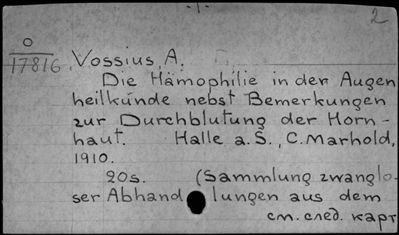 -1-
2
O
17816
Vossius, A.
Die Hämophilie in der Augen
heilkunde nebst Bemerkungen
zur Durchblutung der Horn-
haut. Halle a. S., C. Marhold,
1910.
20s. (Sammlung zwanglo-
ser Abhandlungen aus dem
см. след. карт